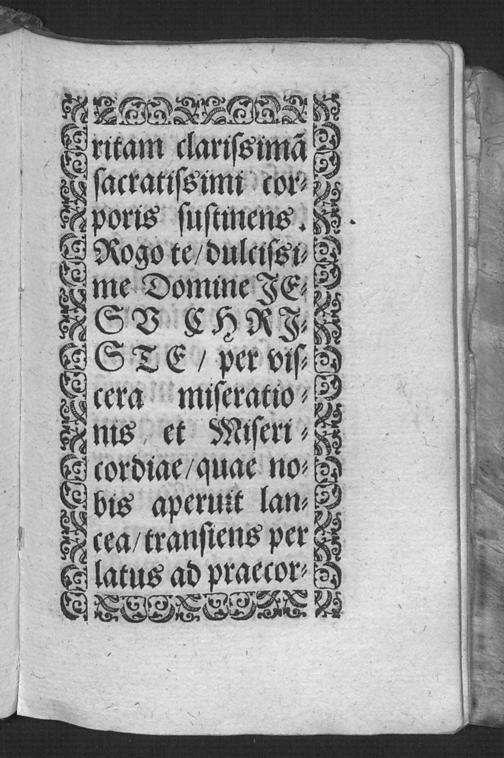 ritam clarissimã
sacratissimi cor⸗
poris sustinens.
Rogo te/dulcissi⸗
me Domine JE⸗
SV CHRJ⸗
STE/ per vis⸗
cera miseratio⸗
nis et Miseri⸗
cordiae/quae no⸗
bis aperuit lan⸗
cea/transiens per
latus ad praecor⸗